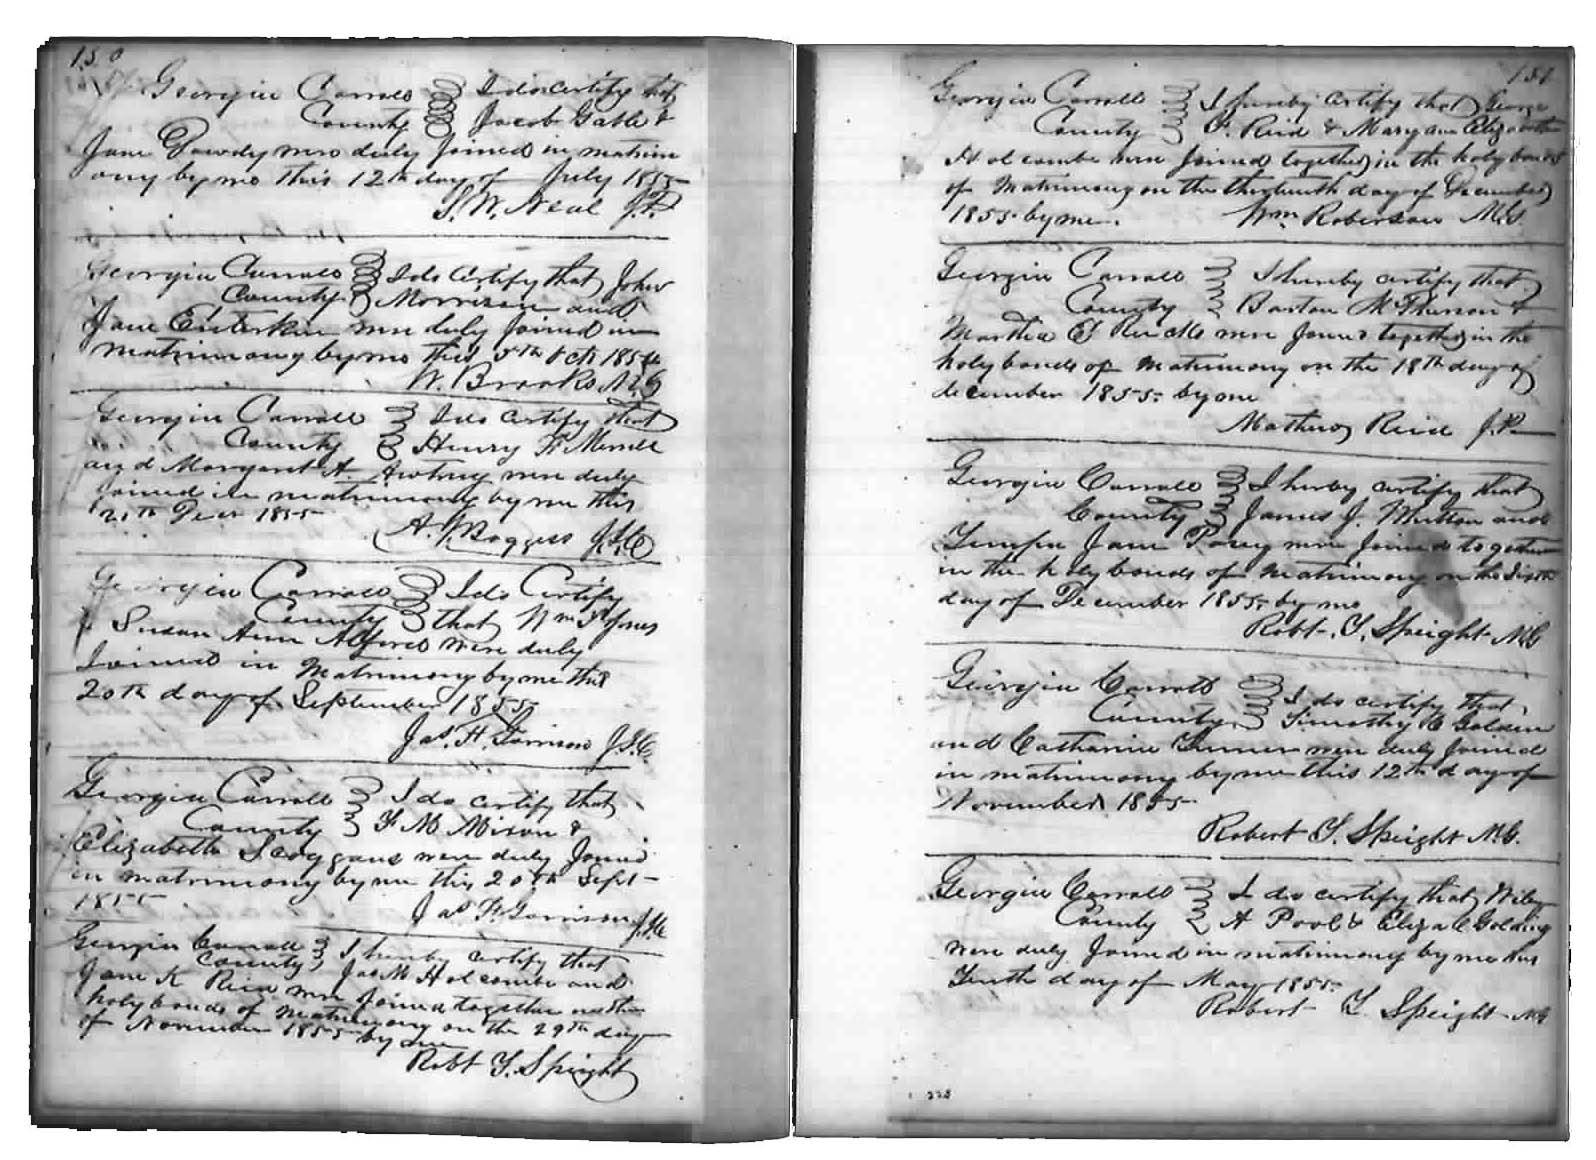 150
Georgia Carroll I do certify that
County Jacob Gable &
Jane Dowdy were duly Joined in matrim
ony by me this 12th day of July 1855
S. W. Neal J.P.
Georgia Carroll I do Certify that John
County Morrison and
Jane Enterkin were duly Joined in
matrimony by me this 5th Oct 1854
W. Brooks M G
Georgia Carroll I do certify that
County Henry F. Merrell
and Margaret A. Awtrey were duly
Joined in matrimony by me this
1855
A. J. Boggess J.I.C.
Georgia Carroll I do Certify
County that Wm F. Jones
Susan Ann Alford were duly
Joined in Matrimony by me this
20th day of September 1855
Jas. H. Garrison J.I.C.
Georgia Carroll I do certify that
County F M Mixon &
Elizabeth Scoggans were duly Joined
in matrimony by me this 20th Sept
1855
Jas H. Garrison J.I.C
Georgia Carroll I hereby certify that
County Jas M Holcombe and
Jane K Reid were Joined together in the
holy bonds of matrimony on the 29th day
of November 1855 by me
Robt Y. Speight
151
Georgia Carroll I hereby certify that George
County T. Reid & Mary ann Elizabeth
Holcombe were Joined together in the holy bonds
of Matrimony on the thirteenth day of December
1855 by me. Wm. Roberson M.G.
Georgia Carroll I hereby certify that
County Barton McPherson &
Martha E were Joined together in the
holy bonds of matrimony on the 18th day of
december 1855. by me
Mathew Reid J.P.
Georgia Carroll I hereby certify that
County James J. and
Jane Posey were Joined together
in the holy bonds of Matrimony on the Sixth
day of December 1855. by me
Robt. Y. Speight M.G
Georgia Carroll I do certify that
County Timothy C Golden
and Catharine Turner were duly Joined
in matrimony by me this 12th day of
November 1855
Robert Y. Speight M.G.
Georgia Carroll I do certify that Wiley
County A Pool & Eliza C Golding
were duly Joined in matrimony by me this
Tenth day of May 1855.
Robert Y. Speight M G
228